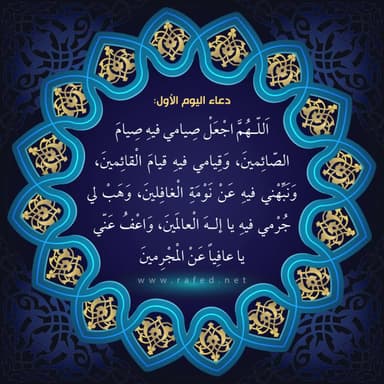 دعاء اليوم الأول:
اَللّـهُمَّ اجْعَلْ صِيامي فيهِ صِيامَ
الصّائِمينَ، وَقِيامي فيهِ قيامَ الْقائِمينَ،
وَنَبِّهْني فيهِ عَنْ نَوْمَةِ الْغافِلينَ، وَهَبْ لي
جُرْمي فيهِ يا إلـهَ الْعالَمينَ، وَاعْفُ عَنّي
يا عافِياً عَنْ الْمُجْرِمينَ
www.rafed.net